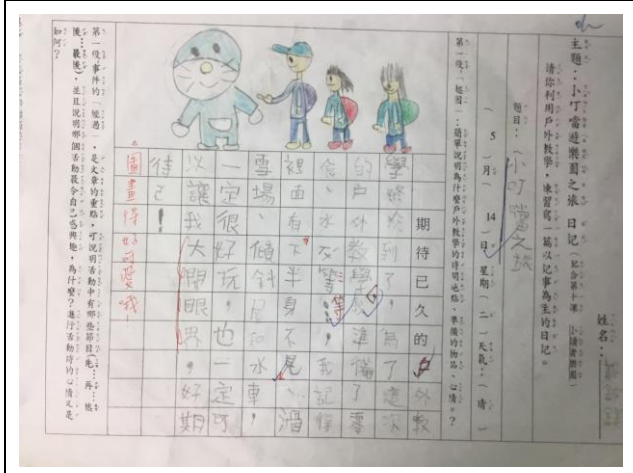 姓名：
主題：小叮噹遊樂園之旅 日記（配合第十課 小讀者樂園）
請你利用戶外教學，練習寫一篇以記事為主的日記。
題目：（小叮噹之旅
（ 5 ）月（ 14 ）日 星期（ 二 ）天氣：（ 晴 ）
第一段：「起因」：簡單說明為什麼戶外教學的時間地點、準備的物品、心情。？
期待已久的戶外教
學終於到了，為了這次
的戶外教學，準備了零
食、水及等等，我記得
裡面有下半身不見、滑
雪場、傾斜屋和水車，
一定很好玩，也一定可
以讓我大開眼界，好期
待已！
圖畫得好可愛哦！
第一段事件的「經過」，是文章的重點，可說明活動中有哪些節目(先…再…然
後…最後)，並且說明哪個活動最令自己感興趣，為什麼？進行活動時的心情又是
如何？